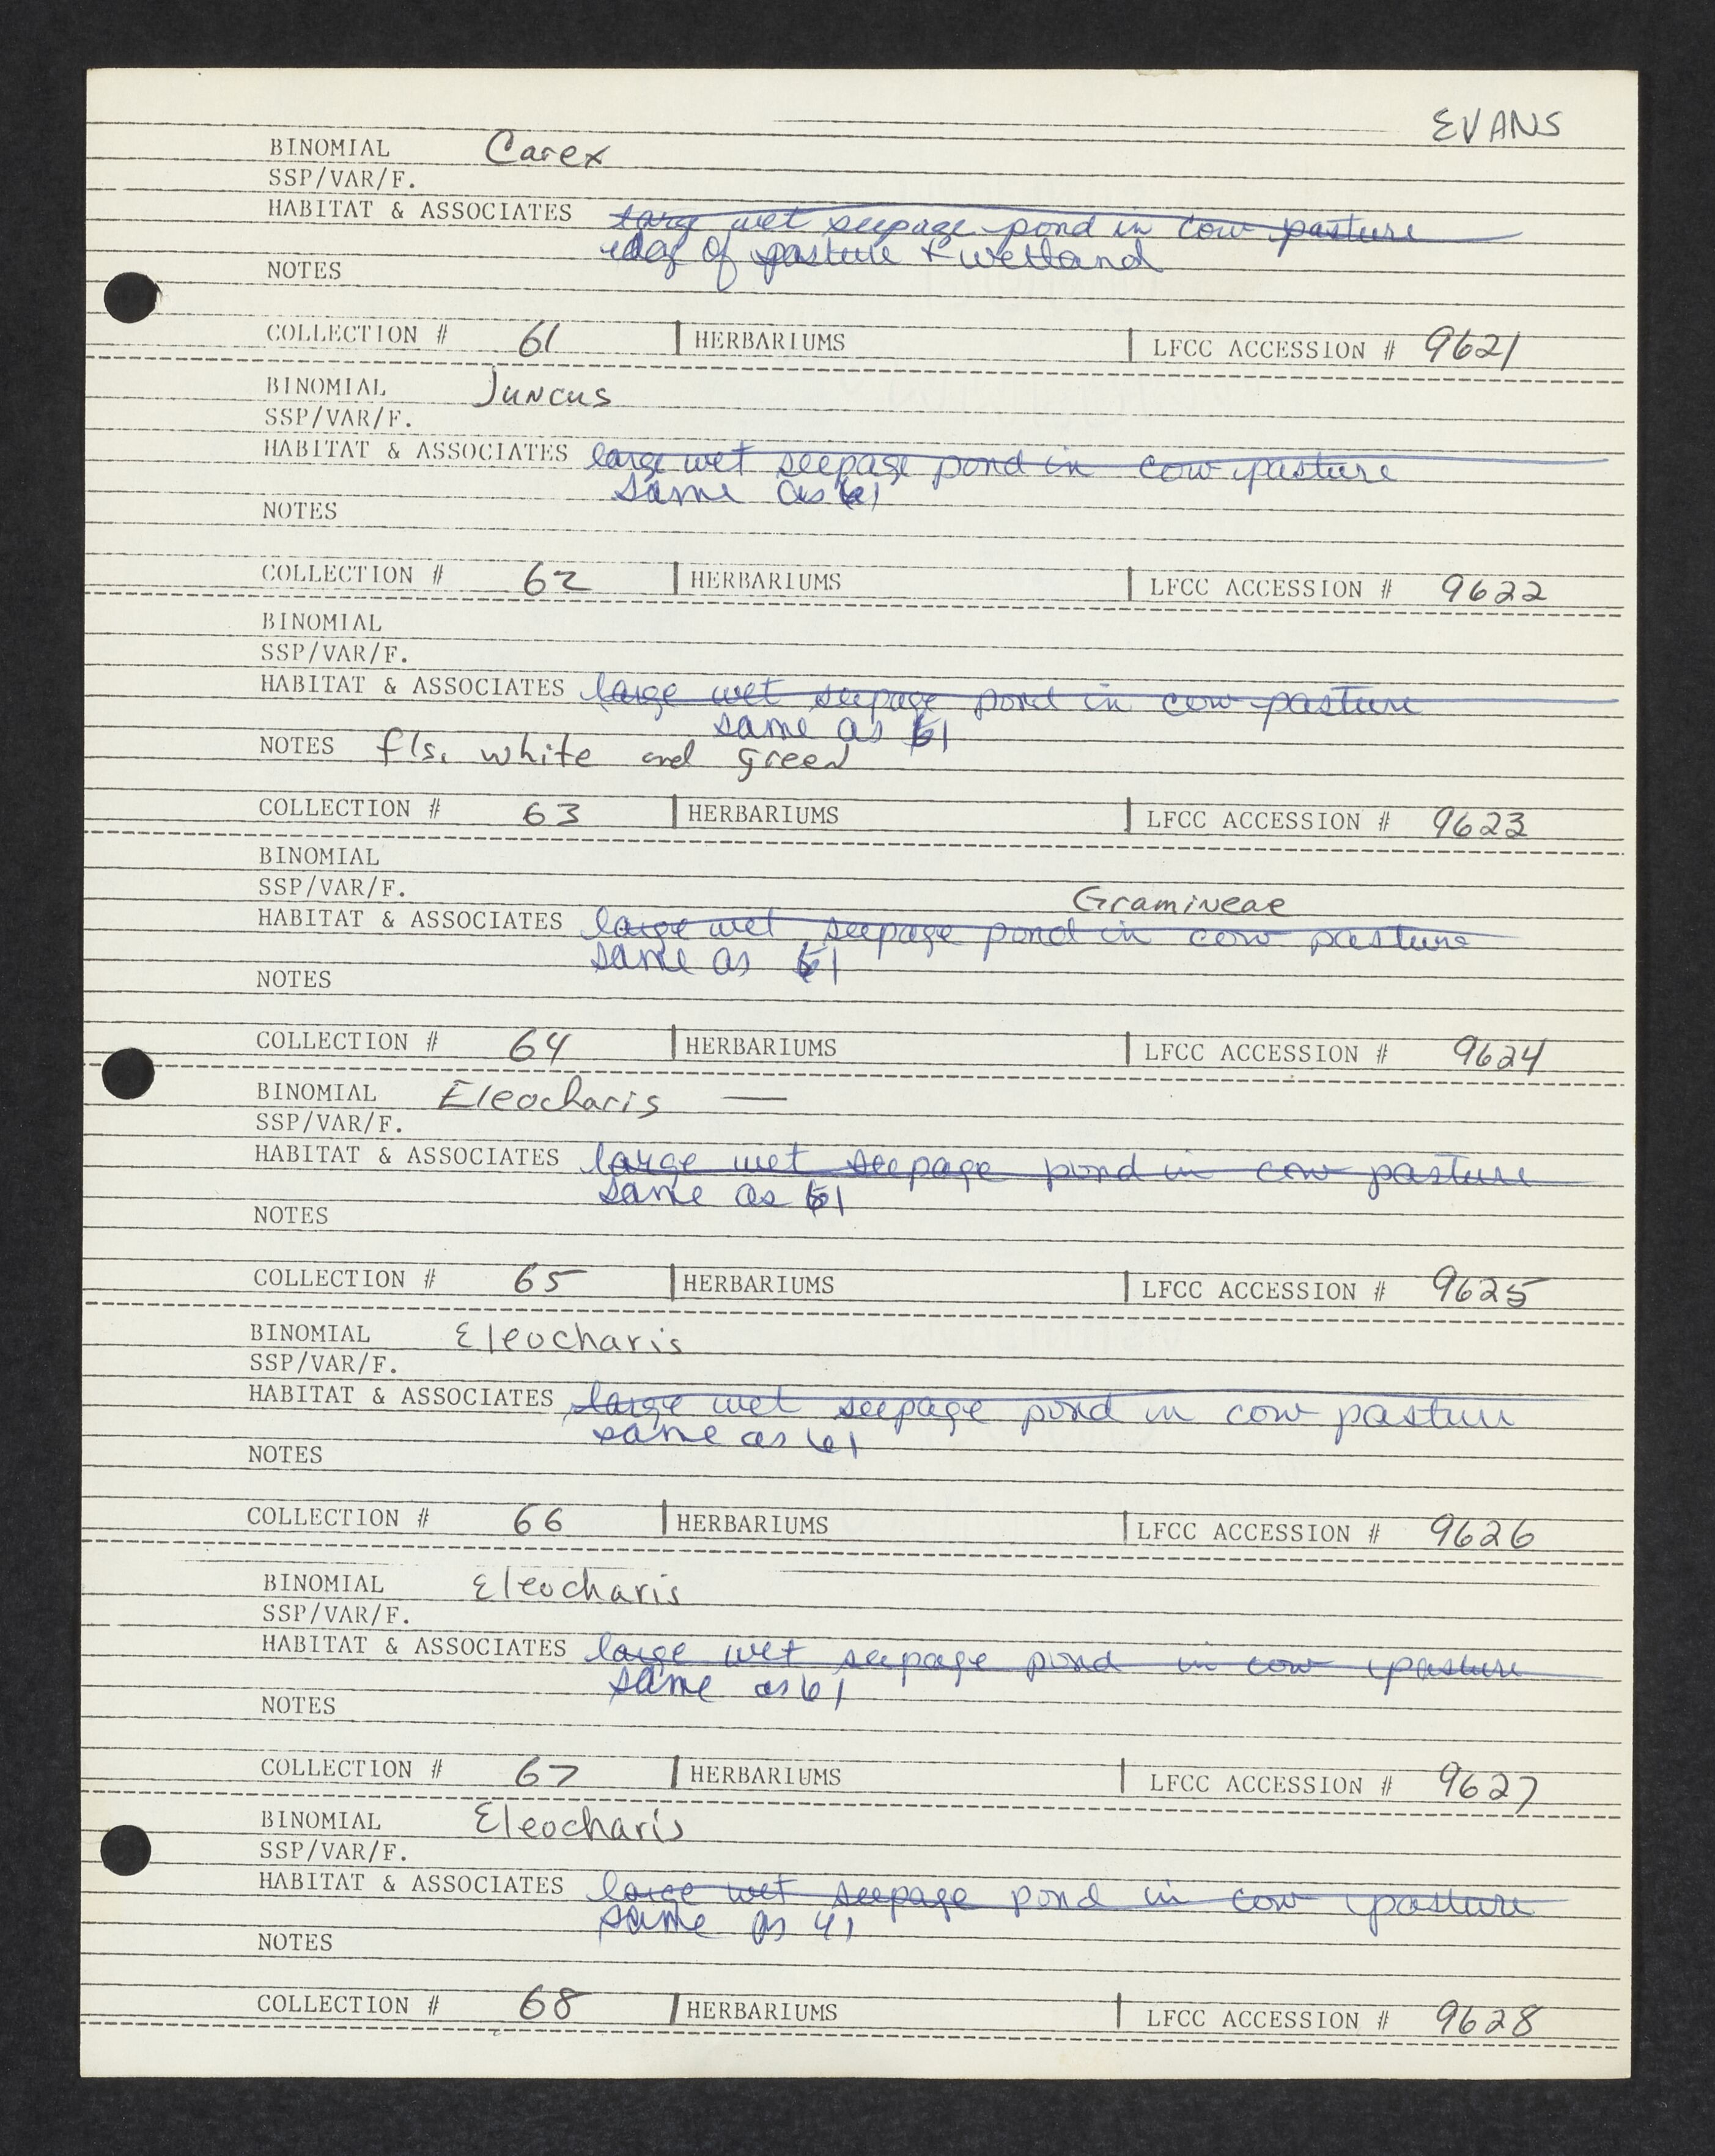 EVANS
BINOMIAL Carex
SSP/VAR/F.
HABITAT & ASSOCIATES large wet seepage pond in cow pasture
edge of pasture & wetland
NOTES
COLLECTION # 61 HERBARIUMS LFCC ACCESSION # 9621
BINOMIAL Juncus
SSP/VAR/F.
HABITAT & ASSOCIATES large wet seepage pond in cow pasture
same as 61
NOTES
COLLECTION # 62 HERBARIUMS LFCC ACCESSION # 9622
BINOMIAL
SSP/VAR/F.
HABITAT & ASSOCIATES large wet seepage pond in cow pasture
same as 61
NOTES fls. white and green
COLLECTION # 63 HERBARIUMS LFCC ACCESSION # 9623
BINOMIAL
SSP/VAR/F.
Gramineae
HABITAT & ASSOCIATES large wet seepage pond in cow pasture
same as 61
NOTES
COLLECTION # 64 HERBARIUMS LFCC ACCESSION # 9624
BINOMIAL Eleocharis —
SSP/VAR/F.
HABITAT & ASSOCIATES large wet seepage pond in cow pasture
same as 61
NOTES
COLLECTION # 65 HERBARIUMS LFCC ACCESSION # 9625
BINOMIAL Eleocharis
SSP/VAR/F.
HABITAT & ASSOCIATES large wet seepage pond in cow pasture
same as 61
NOTES
COLLECTION # 66 HERBARIUMS LFCC ACCESSION # 9626
BINOMIAL Eleocharis
SSP/VAR/F.
HABITAT & ASSOCIATES large wet seepage pond in cow pasture
same as 61
NOTES
COLLECTION # 67 HERBARIUMS LFCC ACCESSION # 9627
BINOMIAL Eleocharis
SSP/VAR/F.
HABITAT & ASSOCIATES large wet seepage pond in cow pasture
same as 61
NOTES
COLLECTION # 68 HERBARIUMS LFCC ACCESSION # 9628